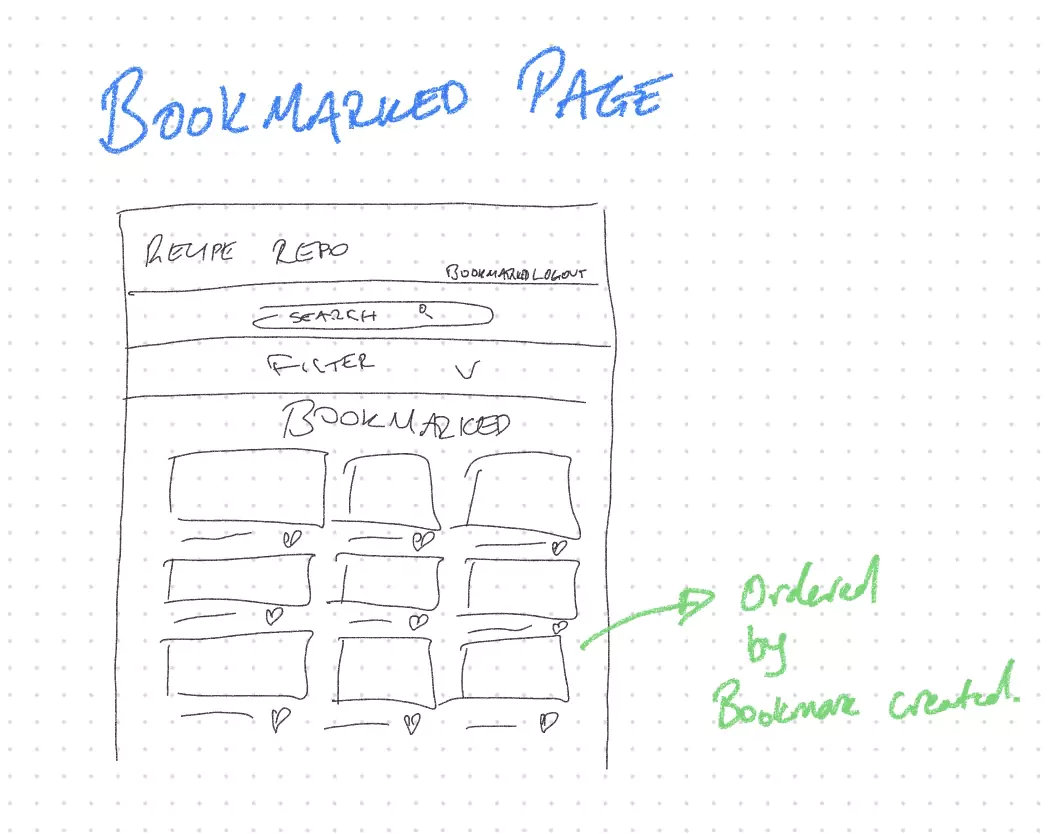 BOOKMARKED PAGE
RECIPE REPO
BOOKMARKED LOGOUT
SEARCH
FILTER
BOOKMARKED
Ordered
by
Bookmark created.